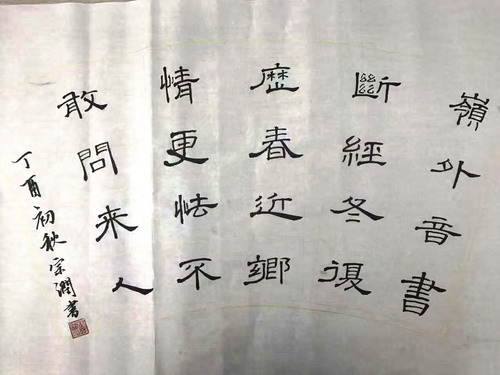 嶺外音書
斷經冬復
歷春近鄉
情更怯不
敢問來人
丁酉初秋宗潤書